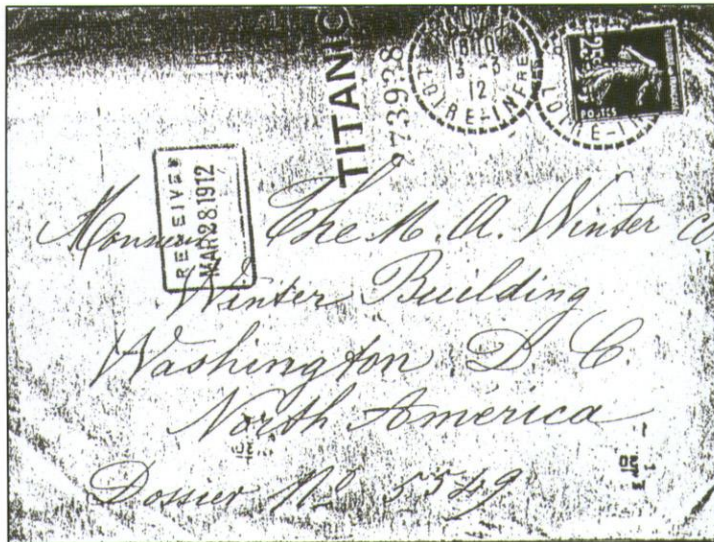 TITANIC
273938
18 10
3 -3
12
LOIRE-INFRE
25c
POSTES
LOIRE-IN
RECEIVED
MAR 28 1912
Monsieur The M. A. Winter co
Winter Building
Washington D. C.
North America
Dossier No 5549